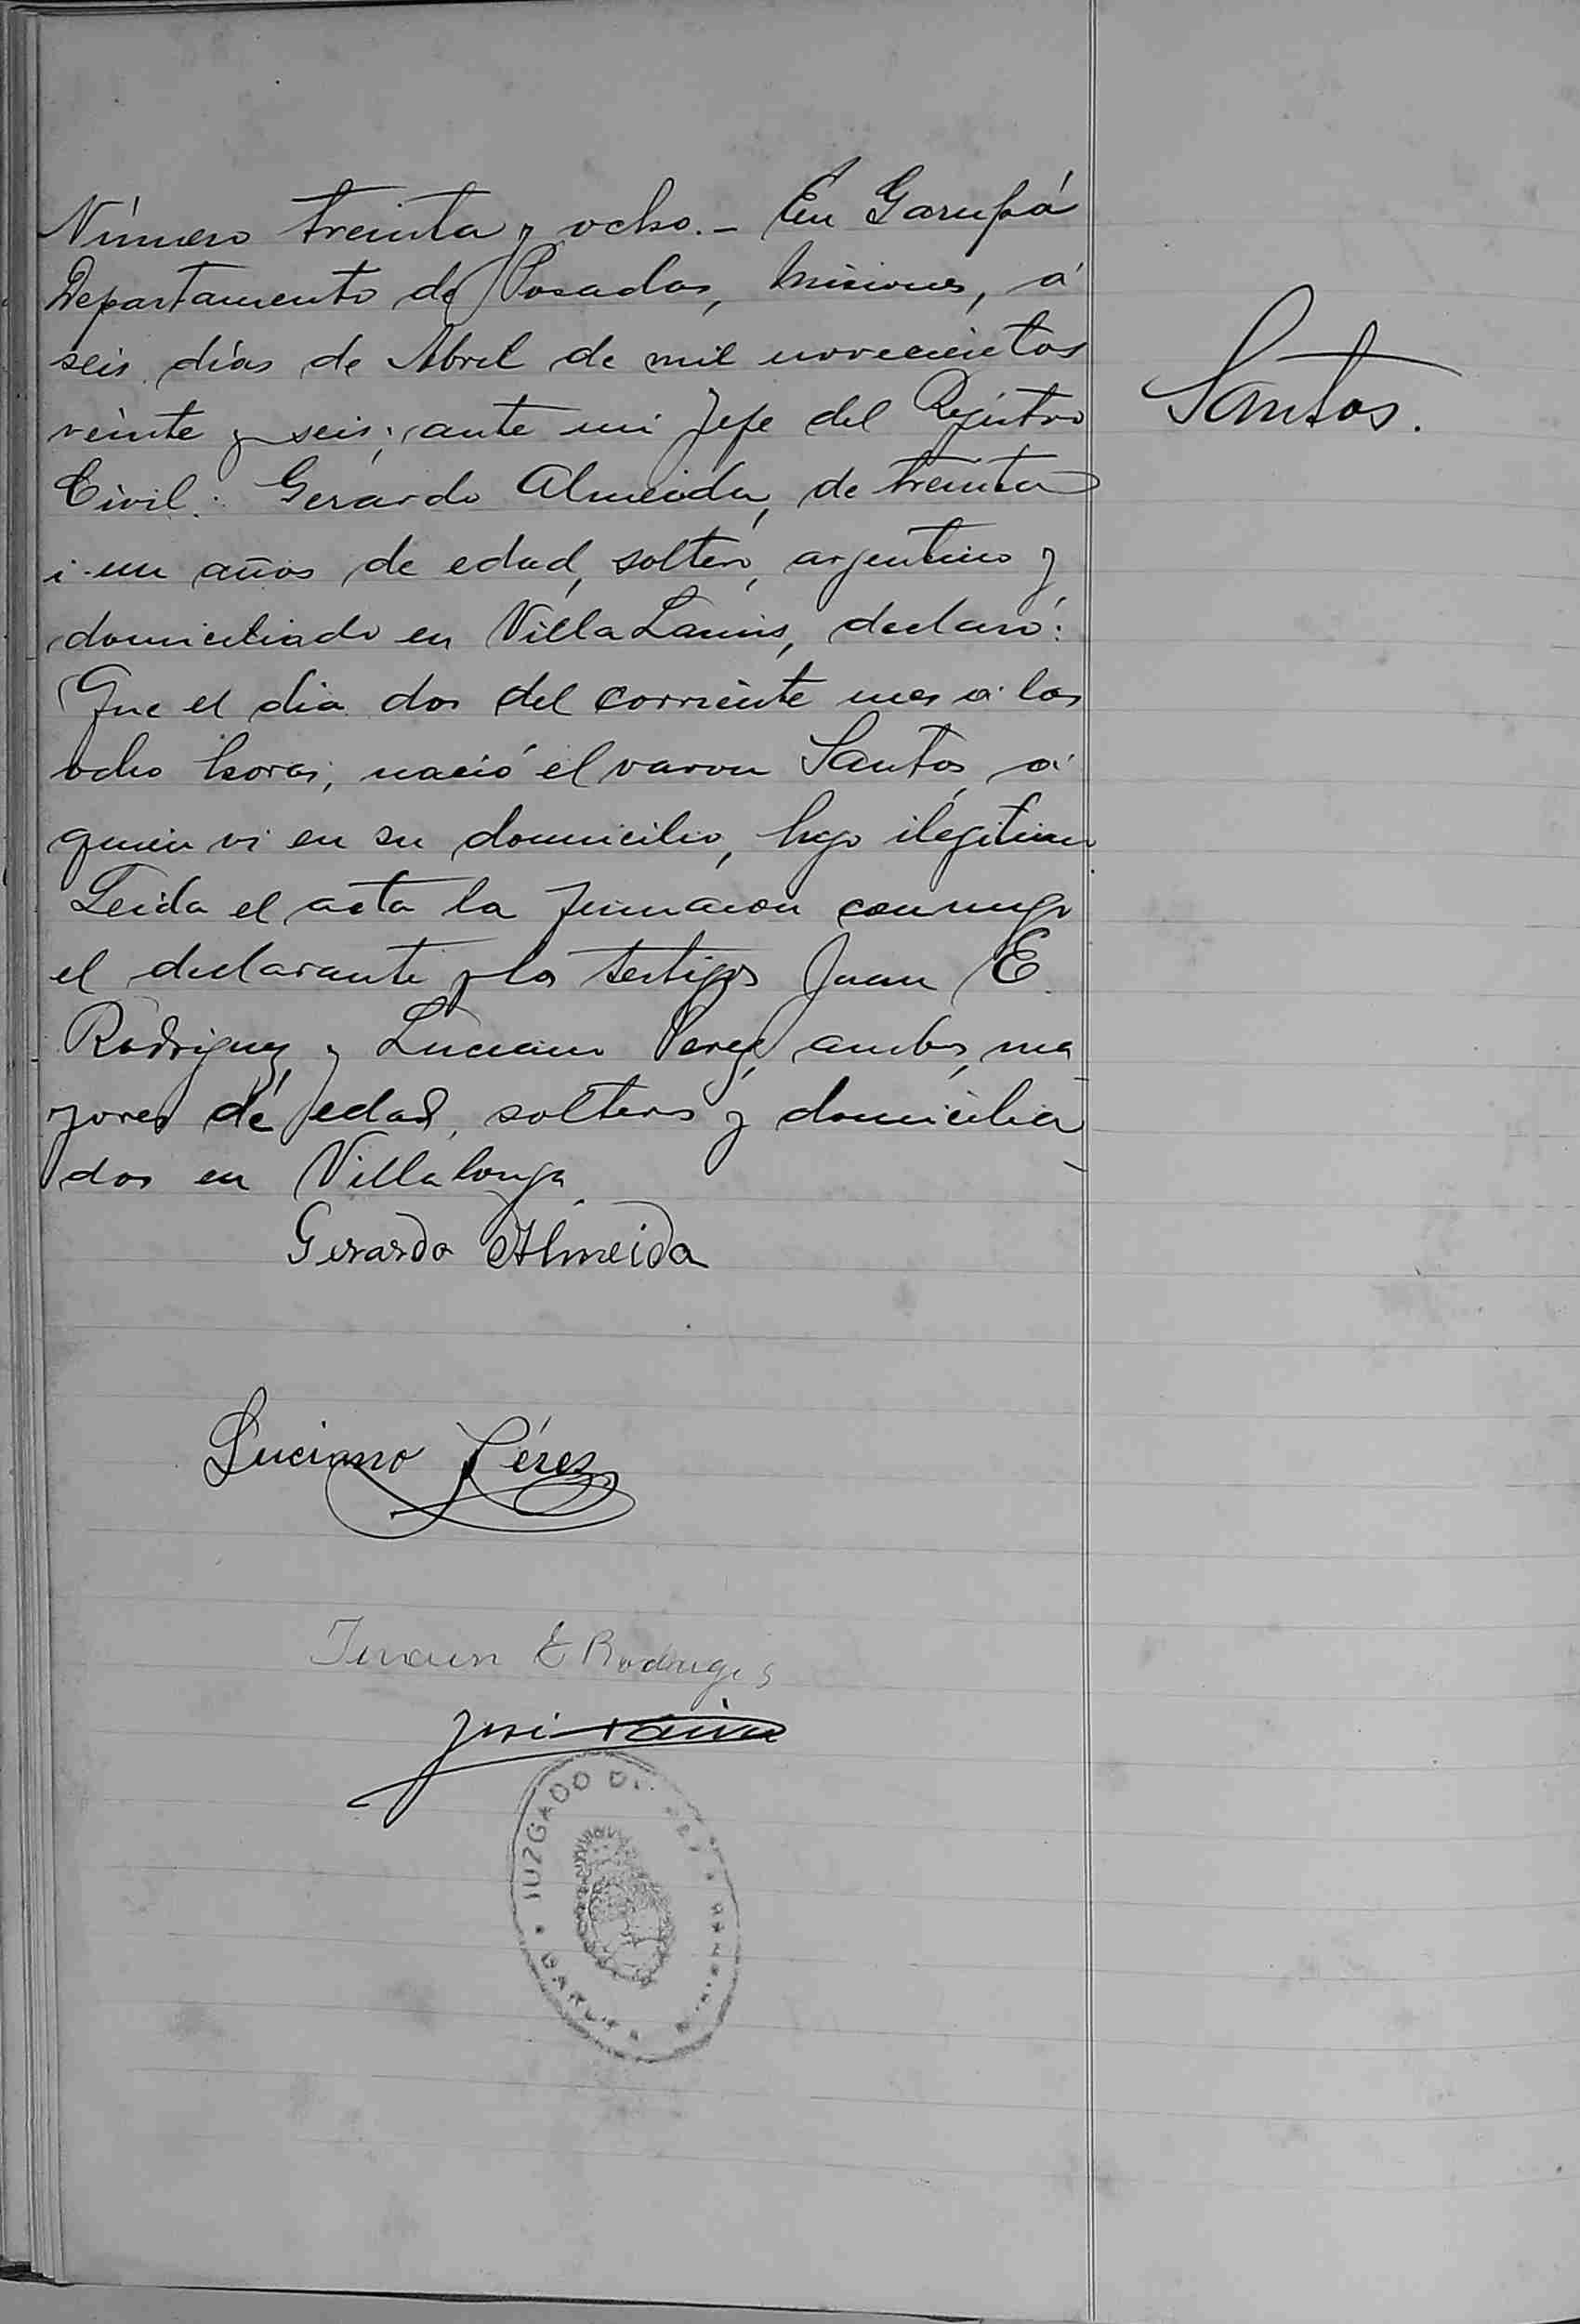 Número treinta y ocho.- En Garupá
Departamento de Posadas, Misiones, á
seis días de Abril de mil novecientos
veinte y seis; ante mi Jefe del Registro
Civil: Gerardo Almeida, de treinta
i un años de edad, soltero, argentino y
domiciliado en Villa Lanús, declaró:
Que el dia dos del corriente mes á las
ocho horas, nació el varon Santos, á
quien vi en su domicilio, hijo ilegitimo
Leida el acta la firmaron conmigo
el declarante y los testigos Juan E.
Rodriguez y Luciano Perez, ambos, ma
yores de edad, solteros y domicilia
dos en Villalonga.
Santos.
Gerardo Almeida
Luciano Pérez
Juan E Rodrigues
José Paiva
JUZGADO DE PAZ
GARUPA